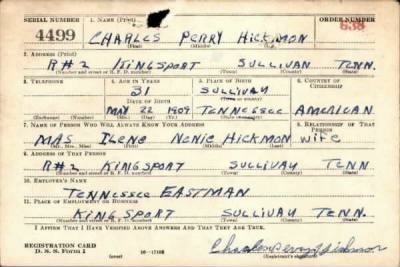 SERIAL NUMBER 1. NAME (Print) ORDER NUMBER
4499 CHARLES PERRY HICKMON 638
(First) (Middle) (Last)
2. ADDRESS (Print)
R#2 KINGSPORT SULLIVAN TENN.
(Number and street or R. F. D. number) (Town) (County) (State)
3. TELEPHONE 4. AGE IN YEARS 5. PLACE OF BIRTH 6. COUNTRY OF CITIZENSHIP
31 SULLIVAY
DATE OF BIRTH (Town or county)
MAY 22 1909 TENNESSEE AMERICAN
(Exchange) (Number) (Mo.) (Day) (Yr.) (State or country)
7. NAME OF PERSON WHO WILL ALWAYS KNOW YOUR ADDRESS 8. RELATIONSHIP OF THAT PERSON
MRS ILENE NENIE HICKMON WIFE
(Mr., Mrs., Miss) (First) (Middle) (Last)
9. ADDRESS OF THAT PERSON
R#2 KINGSPORT SULLIVAY TENN
(Number and street or R. F. D. number) (Town) (County) (State)
10. EMPLOYER'S NAME
TENNESSEE EASTMAN
11. PLACE OF EMPLOYMENT OR BUSINESS
KINGSPORT SULLIVAY TENN.
(Number and street or R. F. D. number) (Town) (County) (State)
I AFFIRM THAT I HAVE VERIFIED ABOVE ANSWERS AND THAT THEY ARE TRUE.
REGISTRATION CARD
D. S. S. Form 1 (over) 16—17105 Charles Perry Hickmon
(Registrant's signature)